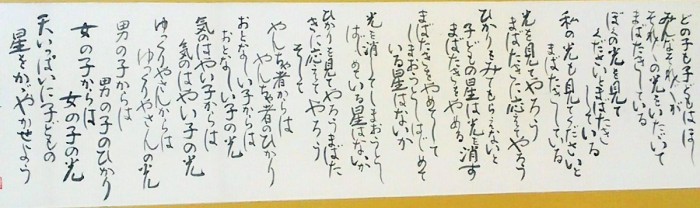 どの子も子どもは ほし
みんなそれぞれが
それぞれの光をいただいて
まばたきしている
ぼくの光を見て
くださいとまばたき
している
私の光も見てくださいと
まばたきしている
光を見てやろう
まばたきに応えてやろう
ひかりをみてもらえないと
子どもの星は光を消す
まばたきをやめる
まばたきをやめて
しまおうとしはじめて
いる星はないか
光を消してしまおうとし
はじめている星はないか
ひかりを見てやろう まばた
きに応えてやろう
そして
やんちゃ者からは
やんちゃ者のひかり
おとなしい子からは
おとなしい子の光
気のはやい子からは
気のはやい子の光
ゆっくりやさんからは
ゆっくりやさんの光
男の子からは
男の子のひかり
女の子からは
女の子の光
天いっぱいに子どもの
星をかゞやかせよう